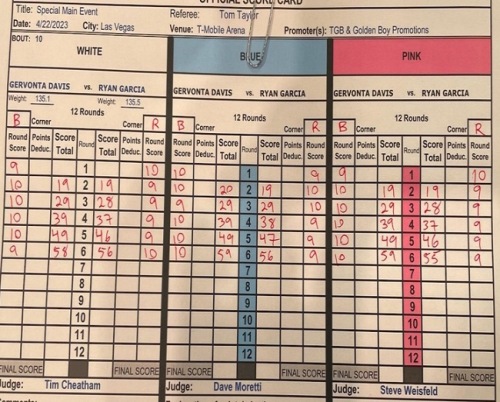 OFFICIAL SCORE CARD
Title: Special Main Event Referee: Tom Taylor
Date: 4/22/2023 City: Las Vegas Venue: T-Mobile Arena Promoter(s): TGB & Golden Boy Promotions
BOUT: 10
WHITE BLUE PINK
GERVONTA DAVIS vs. RYAN GARCIA GERVONTA DAVIS vs. RYAN GARCIA GERVONTA DAVIS vs. RYAN GARCIA
Weight: 135.1 Weight: 135.5
12 Rounds 12 Rounds 12 Rounds
B Corner Corner R B Corner Corner R B Corner Corner R
Round Score Points Deduc. Score Total Round Score Total Points Deduc. Round Score Round Score Points Deduc. Score Total Round Score Total Points Deduc. Round Score Round Score Points Deduc. Score Total Round Score Total Points Deduc. Round Score
9 1 10 10 1 9 9 1 10
10 19 2 19 9 10 20 2 19 10 10 19 2 19 9
10 29 3 28 9 9 29 3 29 10 10 29 3 28 9
10 39 4 37 9 10 39 4 38 9 10 39 4 37 9
10 49 5 46 9 10 49 5 47 9 10 49 5 46 9
9 58 6 56 10 10 59 6 56 9 10 59 6 55 9
7 7 7
8 8 8
9 9 9
10 10 10
11 11 11
12 12 12
FINAL SCORE FINAL SCORE FINAL SCORE FINAL SCORE FINAL SCORE FINAL SCORE
Judge: Tim Cheatham Judge: Dave Moretti Judge: Steve Weisfeld